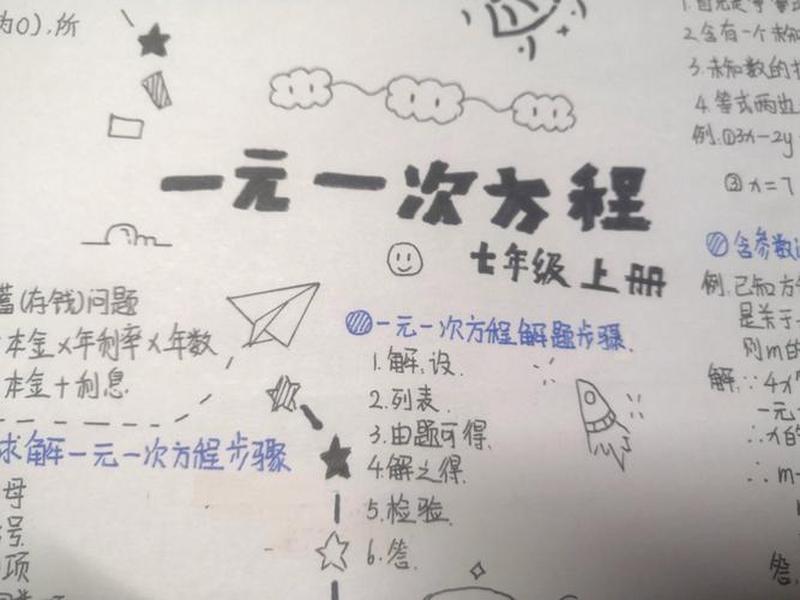 为0),所
一元一次方程
七年级上册
蓄(存钱)问题
本金×年利率×年数
本金+利息
求解一元一次方程步骤
母
号
项
一元一次方程解题步骤.
1.解:设.
2.列表.
3.由题可得.
4.解之得.
5.检验.
6.答.
2.含有一个未知
3.未知数的
4.等式两边
例.①3x-2y
③x=7
含参数
例.已知方
是关于
则m的
解:∵4x
一元
∴x的
∴m-
答.